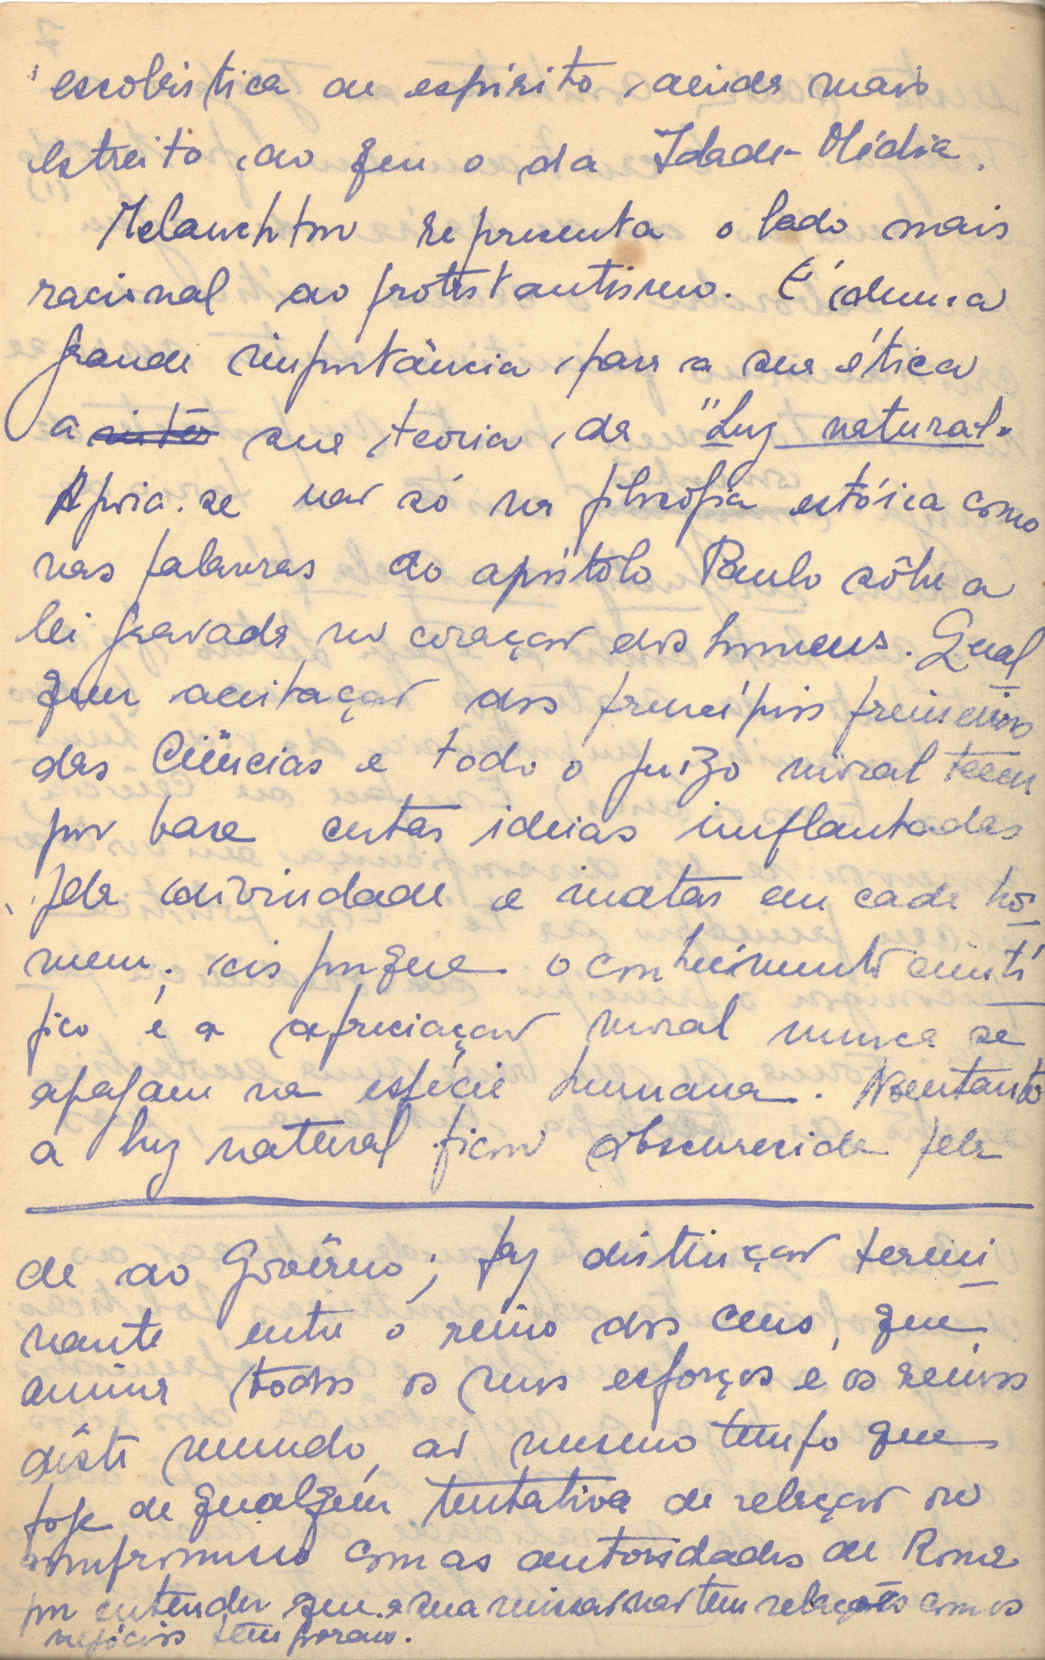 escolástica de espírito ainda mais
estreito do que o da Idade-Média.
Melanchton representa o lado mais
racional do protestantismo. É duma
grande importância para a sua ética
a sua teoria da "Luz natural.
Apoia-se não só na filosofia estóica como
nas palavras do apóstolo Paulo sôbre a
lei gravada no coração dos homens. Qual
quer aceitação dos princípios primeiros
das Ciências e todo o juizo moral teem
por base certas ideias implantadas
pela divindade e inatas em cada ho
mem; eis porque o conhecimento cientí
fico e a apreciação moral nunca se
apagam na espécie humana. No entanto
a luz natural ficou obscurecida pela
de do Govêrno; faz distinção termi
nante entre o reino dos Ceus, que
anima todos os seus esforços e os reinos
dêste mundo, ao mesmo tempo que
foge de qualquer tentativa de relação ou
compromisso com as autoridades de Roma
por entender que a sua missão não tem relações com os
negócios temporais.